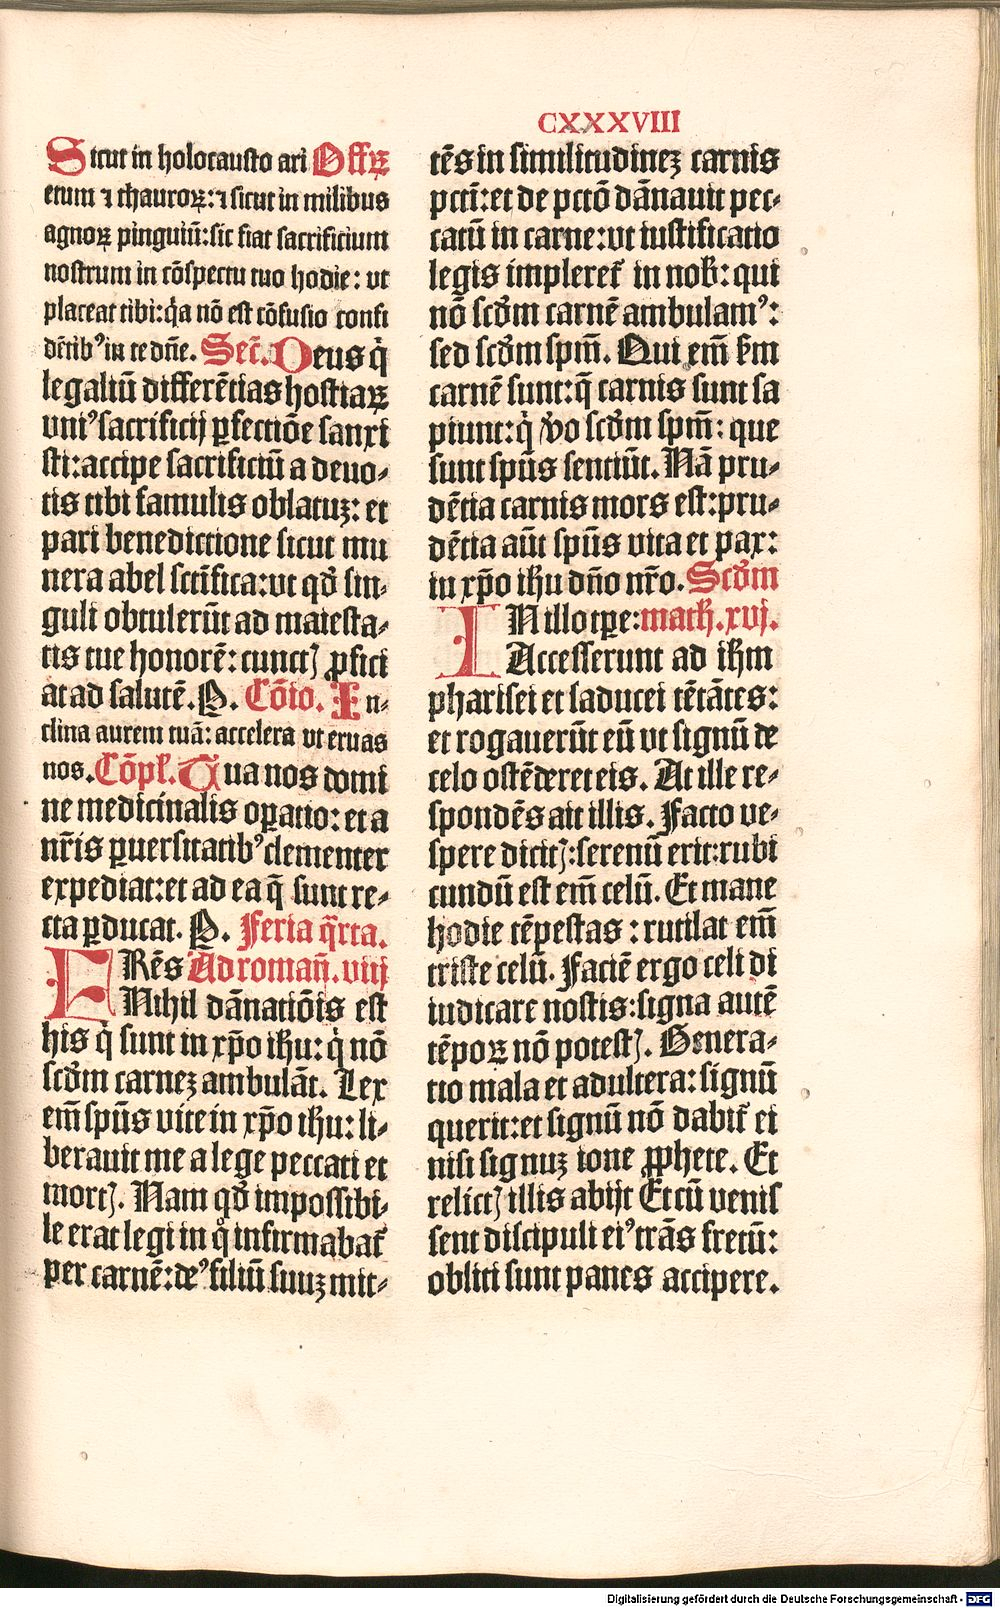 CXXXVIII
Sicut in holocausto ari Offꝝ
etum ⁊ thauroꝝ: ⁊ sicut in milibus
agnoꝝ pinguiū: sic fiat sacrificium
nostrum in cōspectu tuo hodie: vt
placeat tibi: qͥa nō est cōfusio confi
dētibꝰ in te dn̄e. Sec̄. Deus qͥ
legaliū differētias hostiaꝝ
vniꝰ sacrificij ꝑfectiōe sanxi
sti: accipe sacrificiū a deuo⸗
tis tibi famulis oblatuꝫ: et
pari benedictione sicut mu
nera abel sctīfica: vt qđ sin⸗
guli obtulerūt ad maiesta⸗
tis tue honorē: cunctꝭ ꝓfici
at ad salutē. P. Cōio. In⸗
clina aurem tuā: accelera vt eruas
nos. Cōpl̄. Tua nos domi
ne medicinalis oꝑatio: et a
nr̄is ꝑuersitatibꝰ clementer
expediat: et ad ea q̄ sunt re⸗
cta ꝑducat. P. Feria q̄rta.
FRēs Ad roman̄. viij
Nihil dānatiōis est
his qͥ sunt in xp̄o ihu: qͥ nō
scđm carneꝫ ambulāt. Lex
em̄ spūs vite in xp̄o ihu: li⸗
berauit me a lege peccati et
mortꝭ. Nam qđ impossibi⸗
le erat legi in qͦ infirmabat̄
per carnē: deꝰ filiū suuꝫ mit⸗
tēs in similitudineꝫ carnis
pcc̄i: et de pcc̄ō dānauit pec⸗
catū in carne: vt iustificatio
legis impleret̄ in nob̄: qui
nō scđm carnē ambulamꝰ:
sed scđm spm̄. Qui em̄ scđm
carnē sunt: q̄ carnis sunt sa
piunt: qͥ v̓o scđm spm̄: que
sunt spūs sentiūt. Nā pru⸗
dētia carnis mors est: pru⸗
dētia aūt spūs vita et pax:
in xp̄o ihu dn̄o nr̄o. Scđm
IN illo tꝑe: math. xvj.
Accesserunt ad ihm
pharisei et saducei tētātes:
et rogauerūt eū vt signū de
celo ostēderet eis. At ille re⸗
spondēs ait illis. Facto ve⸗
spere dicitꝭ: serenū erit: rubi
cundū est em̄ celū. Et mane
hodie tēpestas: rutilat em̄
triste celū. Faciē ergo celi di
iudicare nostis: signa autē
tēpoꝝ nō potestꝭ. Genera⸗
tio mala et adultera: signū
querit: et signū nō dabit̄ ei
nisi signuꝫ ione ꝓphete. Et
relictꝭ illis abijt Et cū venis
sent discipuli eiꝰ trās fretū:
obliti sunt panes accipere.
Digitalisierung gefördert durch die Deutsche Forschungsgemeinschaft - DFG